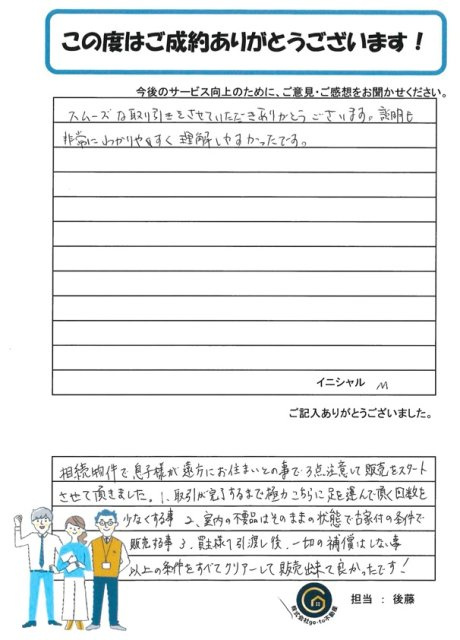 この度はご成約ありがとうございます！
今後のサービス向上のために、ご意見・ご感想をお聞かせください。
スムーズな取り引きをさせていただきありがとうございます。説明も
非常にわかりやすく理解しやすかったです。
イニシャル M
ご記入ありがとうございました。
相続物件で息子様が遠方にお住まいとの事で3点注意して販売をスタート
させて頂きました。1、取引が完了するまで極力こちらに足を運んで頂く回数を
少なくする事 2、室内の不要品はそのままの状態で古家付の条件で
販売する事 3、買主様へ引渡し後、一切の補償はしない事
以上の条件をすべてクリアーして販売出来て良かったです！
株式会社go-to不動産
担当 : 後藤